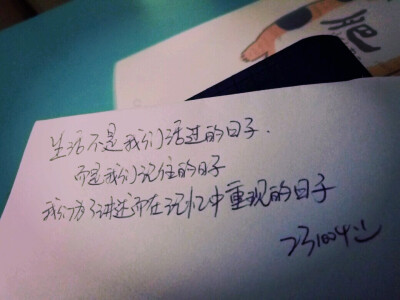 肥
生活不是我们活过的日子.
而是我们记住的日子
我们为了讲述而在记忆中重现的日子